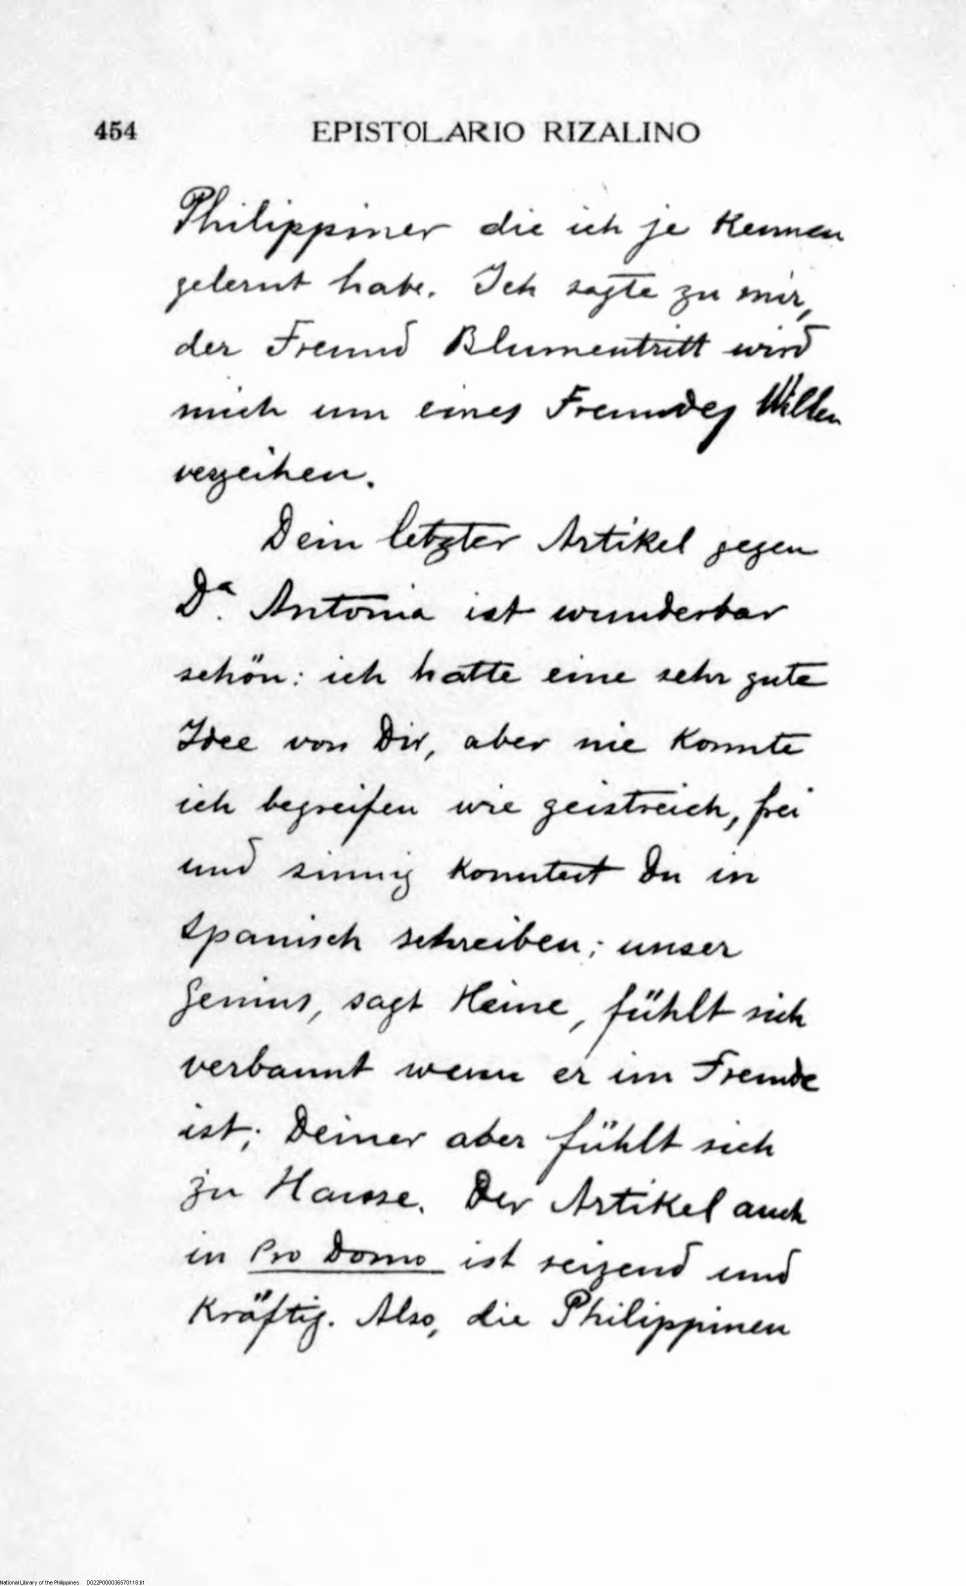 454 EPISTOLARIO RIZALINO
Philippiner die ich je kennen
gelernt habe. Ich sagte zu mir,
der Freund Blumentritt wird
mich um eines Freundes Willen
verzeihen.
Dein letzter Artikel gegen
Dª. Antonia ist wunderbar
schön: ich hatte eine sehr gute
Idee von Dir, aber nie konnte
ich begreifen wie geistreich, frei
und sinnig konntest Du in
Spanisch schreiben; unser
Genius, sagt Heine, fühlt sich
verbannt wenn er im Fremde
ist; Deiner aber fühlt sich
zu Hause. Der Artikel auch
in Pro Domo ist reizend und
kräftig. Also, die Philippinen
National Library of the Philippines